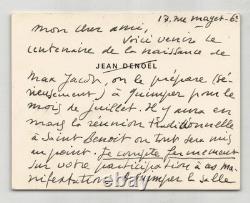 17. rue mayet - 6e
mon cher ami,
voici venir le
centenaire de la naissance de
JEAN DENOEL
Max Jacob, on le prépare (sé-
rieusement) à Quimper pour le
mois de juillet. Il y aura en
mars la réunion traditionnelle
à Saint Benoit ou tout sera mis
au point. Je compte fermement
sur votre participation à ces ma-
nifestations. Quimper la salle